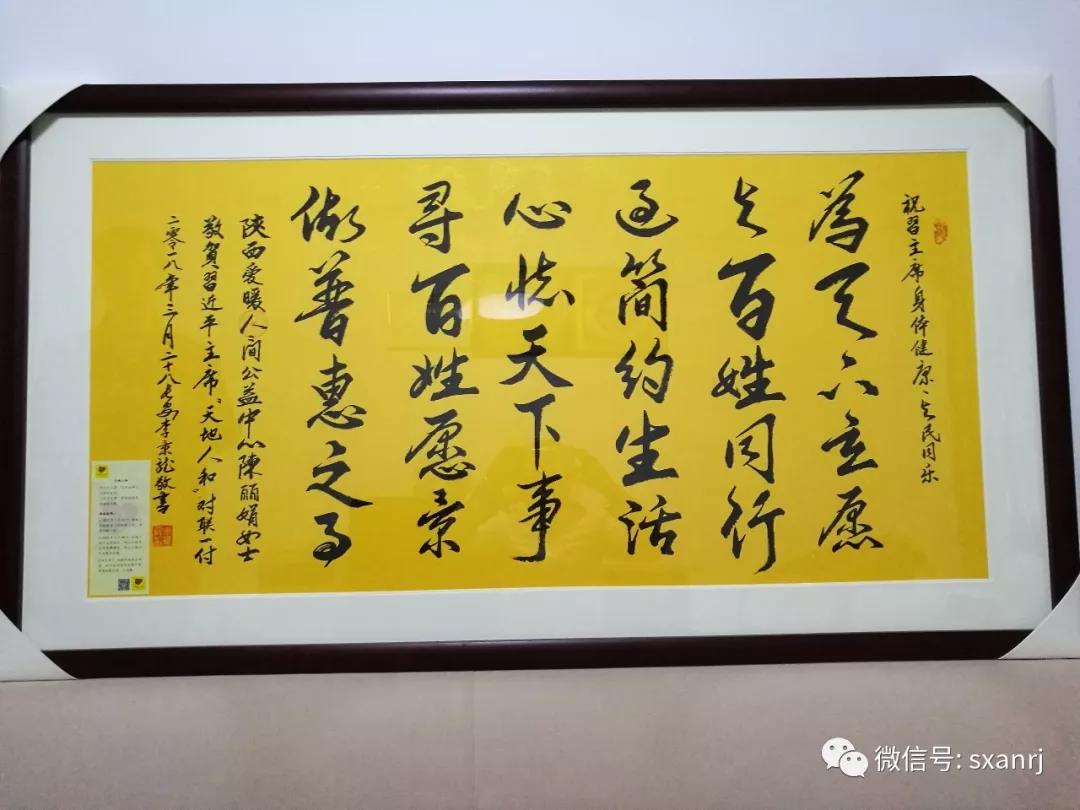 祝習主席身体健康、与民同乐
為天下立愿
与百姓同行
过簡约生活
心怀天下事
寻百姓愿景
做普惠之事
陝西爱暖人间公益中心陳丽娟女士
敬賀習近平主席“天地人和”对联一付
二零一八年三月二十八
李景龙敬書
微信号: sxanrj